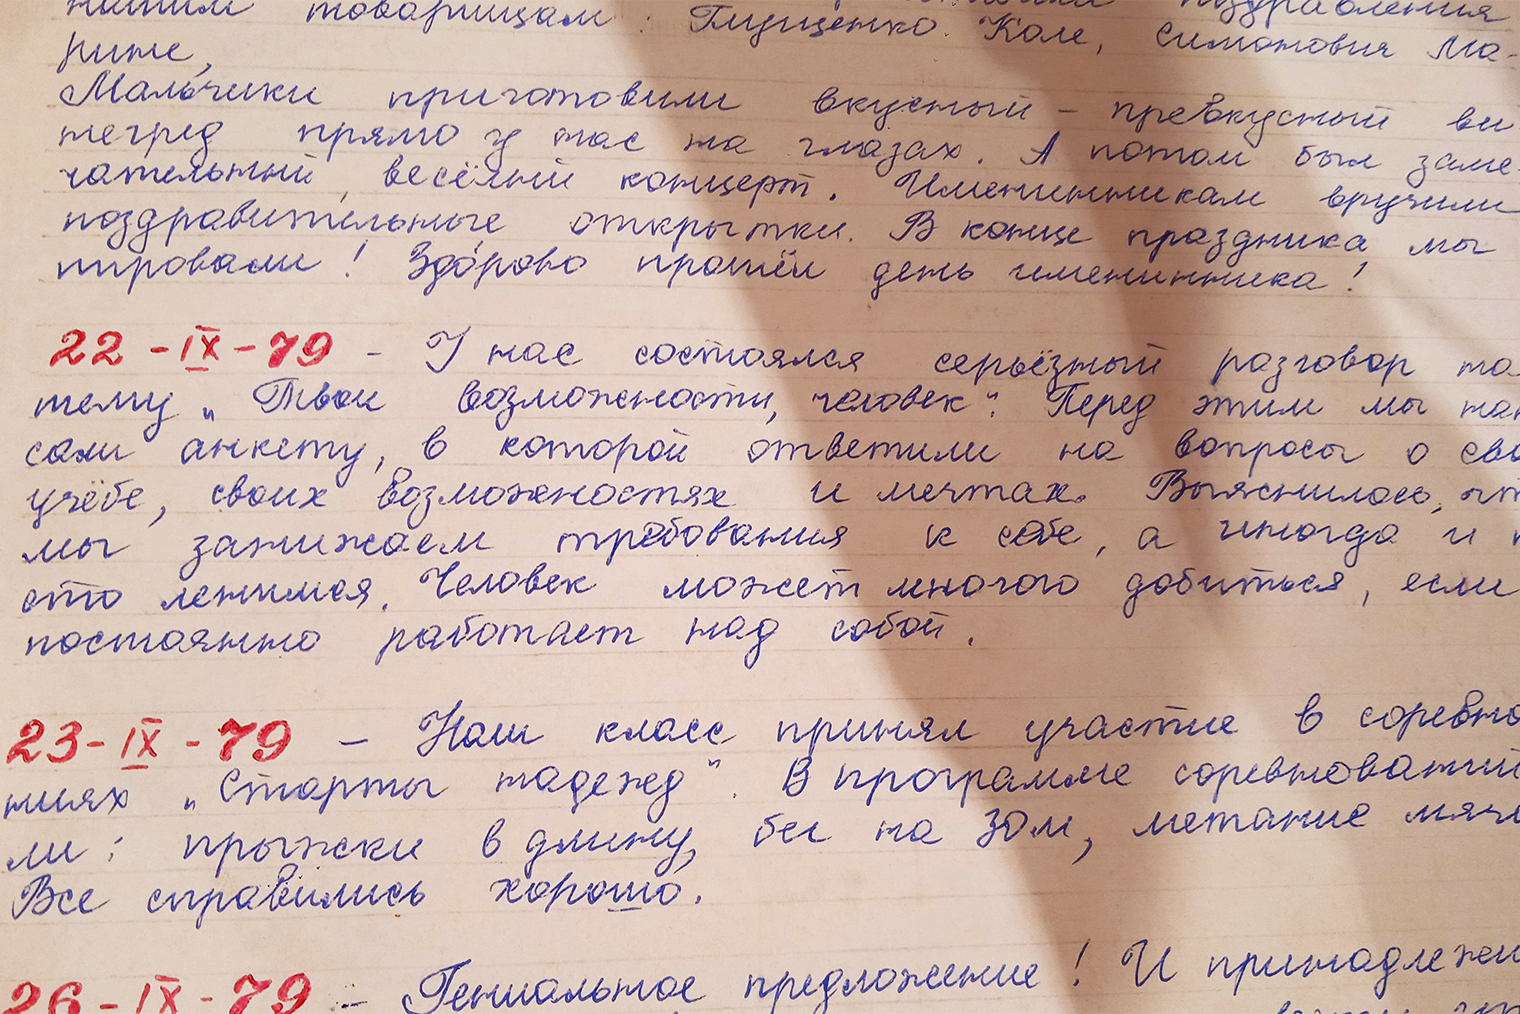 нашим товарищам: Глущенко Коле, Симонович Ма-
рине,
Мальчики приготовили вкусный - превкусный ви
негред прямо у нас на глазах. А потом был заме-
чательный, весёлый концерт. Именинникам вручили
поздравительные открытки. В конце праздника мы
пировали! Здорово прошёл день именинника!
22-IX-79 - У нас состоялся серьёзный разговор на
тему „Твои возможности, человек". Перед этим мы нап
сали анкету, в которой ответили на вопросы о сво
учёбе, своих возможностях и мечтах. Выяснилось, чт
мы занижаем требования к себе, а иногда и
сто ленимся. Человек может многого добиться, если
постоянно работает над собой.
23-IX-79 - Наш класс принял участие в соревно
ниях „Старты надежд". В программе соревнований
ли: прыжки в длину, бег на 30м, метание мяча
Все справились хорошо.
26-IX-79 - Гениальное предложение! И принадлежи